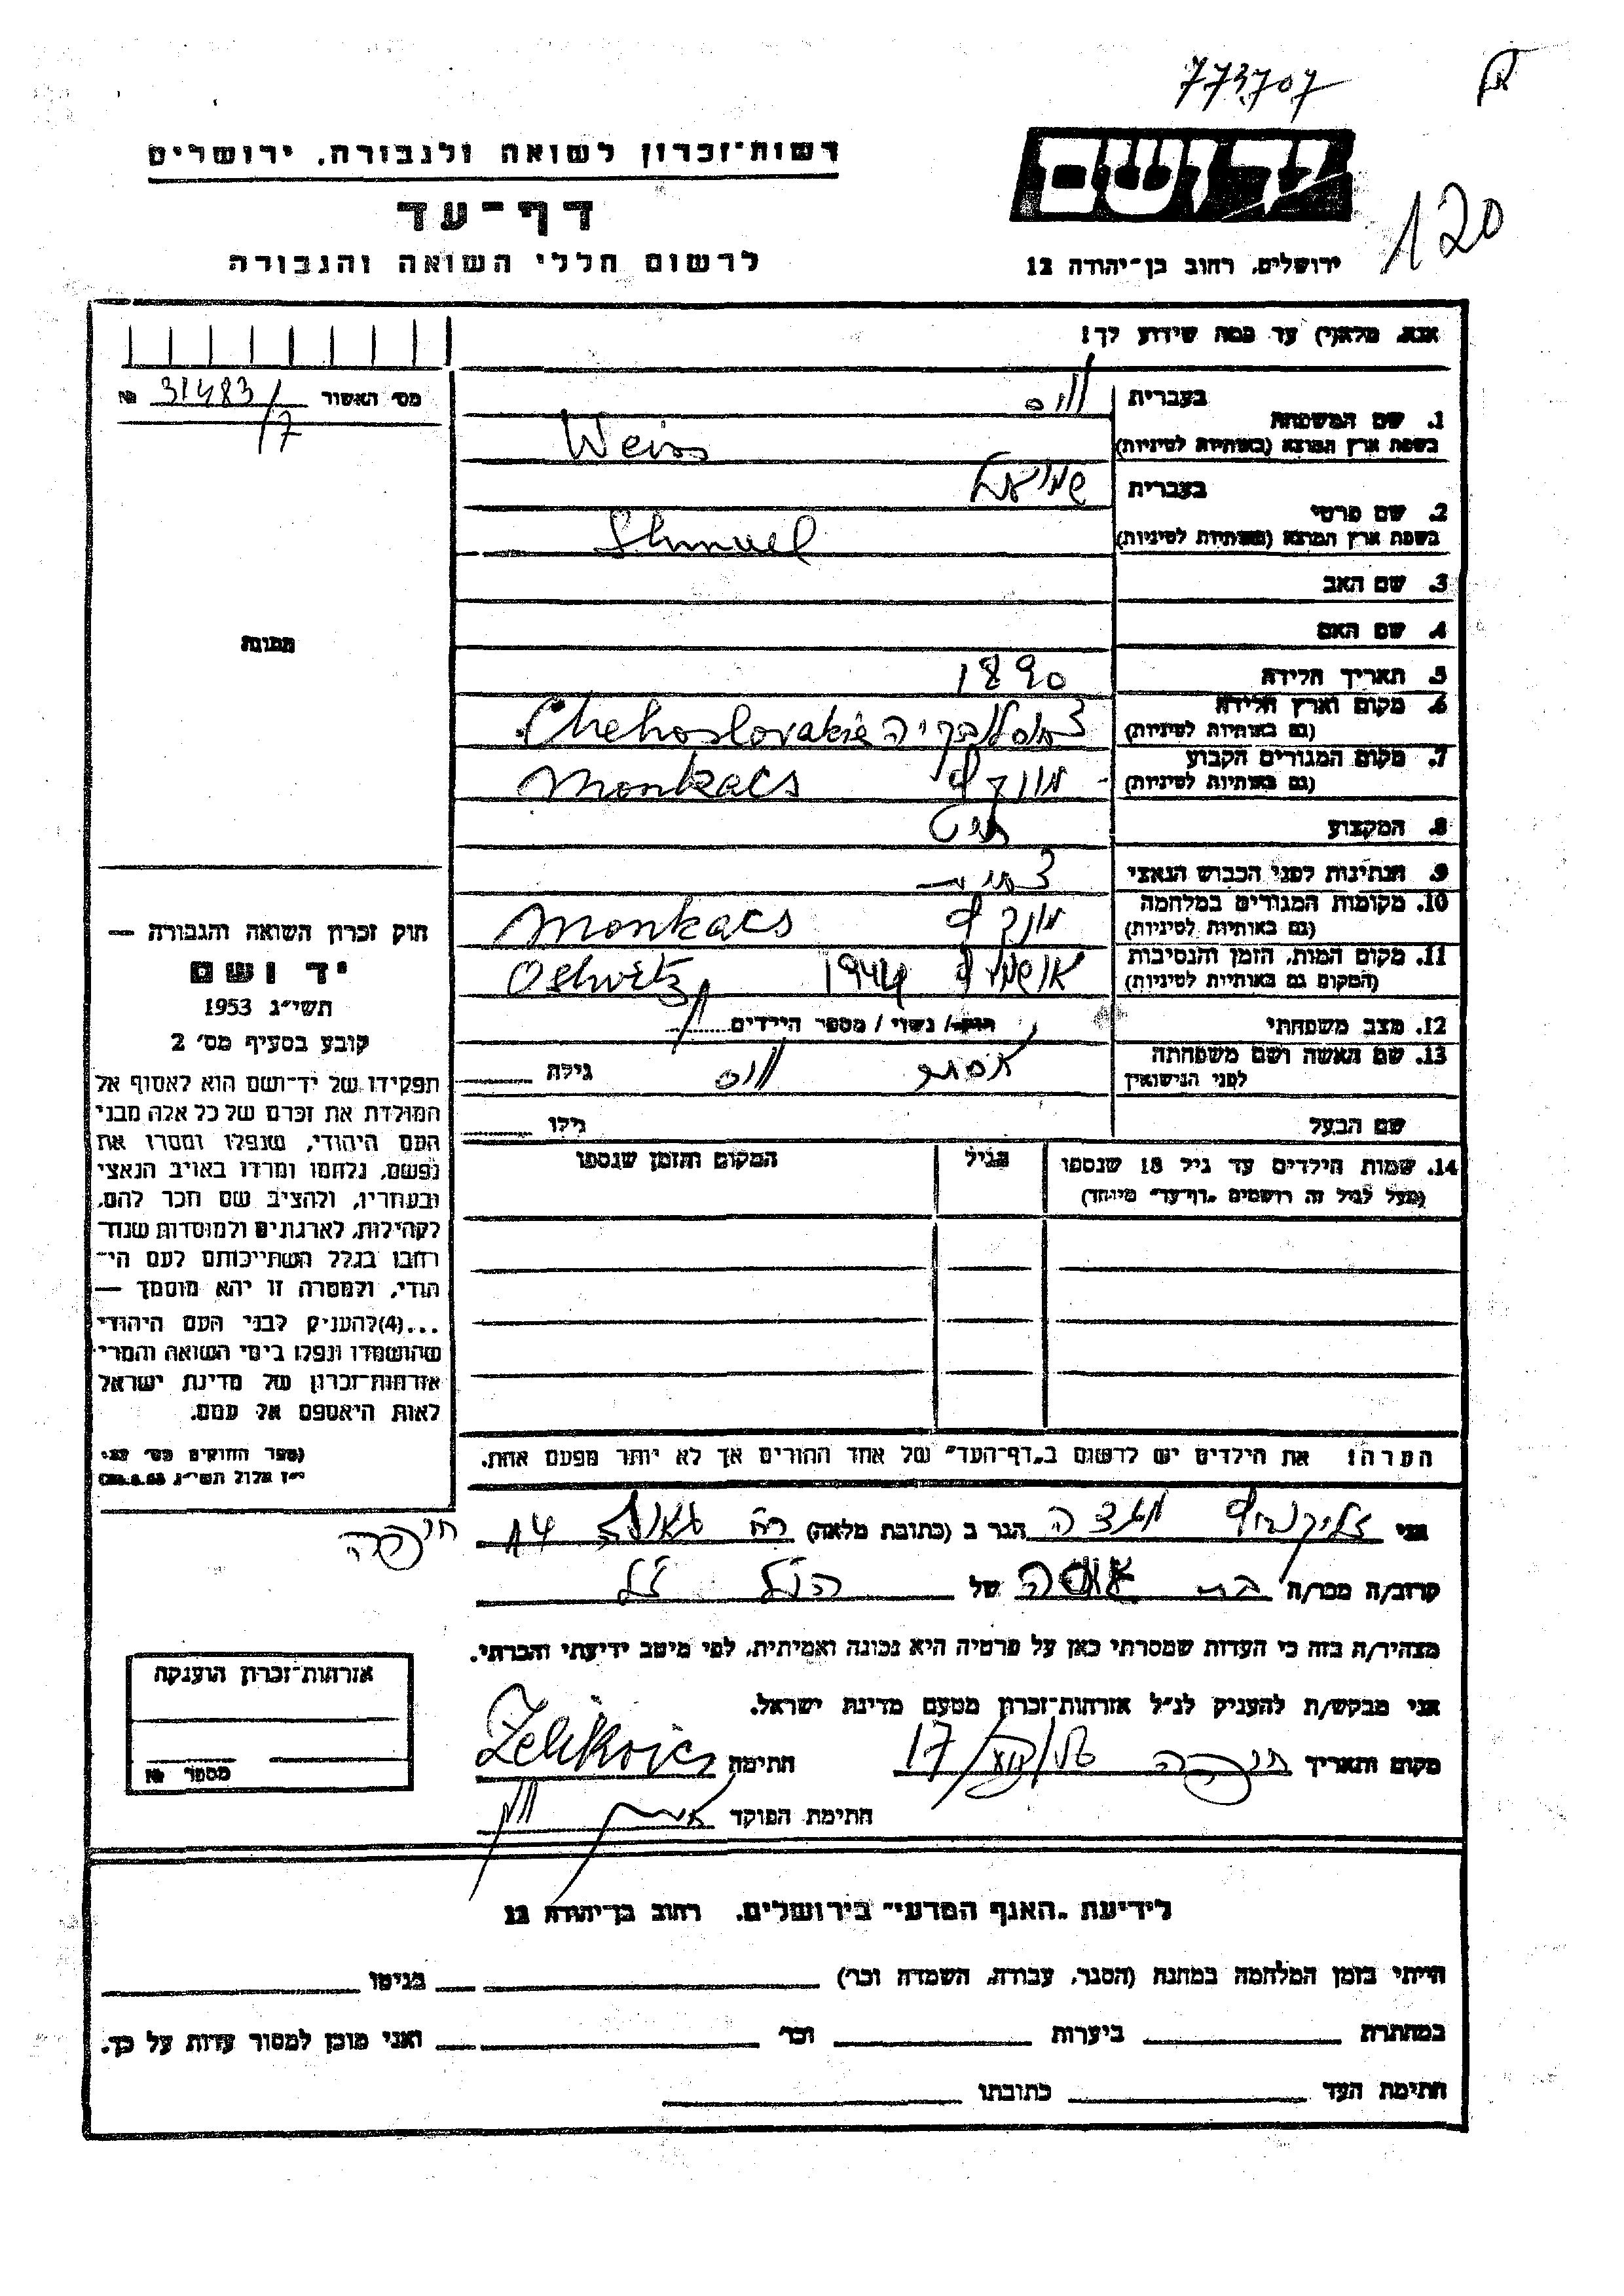 773707
120
יד ושם
ירושלים, רחוב בן־יהודה 12
רשות־זכרון לשואה ולגבורה, ירושלים
דף־עד
לרשום חללי השואה והגבורה
אנא, מלא(י) עד כמה שידוע לך!
מס׳ האשור 31483/7 №
1. שם המשפחה בעברית וויס
בשפת ארץ המוצא (באותיות לטיניות) Weiss
2. שם פרטי בעברית שמואל
בשפת ארץ המוצא (באותיות לטיניות) Shmuel
3. שם האב
4. שם האם
5. תאריך הלידה 1890
6. מקום וארץ הלידה (גם באותיות לטיניות) Chehoslovakia
7. מקום המגורים הקבוע (גם באותיות לטיניות) מונקץ Monkacs
8. המקצוע
9. הנתינות לפני הכבוש הנאצי
10. מקומות המגורים במלחמה (גם באותיות לטיניות) מונקץ Monkacs
11. מקום המות, הזמן והנסיבות (המקום גם באותיות לטיניות) 1944 Oshvetz
12. מצב משפחתי רווק / נשוי / מספר הילדים
13. שם האשה ושם משפחתה לפני הנישואין אסתר וויס גילה
שם הבעל גילו
14. שמות הילדים עד גיל 18 שנספו
(מעל לגיל זה רושמים „דף־עד״ מיוחד)
הגיל
המקום והזמן שנספו
הערה: את הילדים יש לרשום ב„דף־העד״ של אחד ההורים אך לא יותר מפעם אחת.
תמונה
חוק זכרון השואה והגבורה —
יד ושם
תשי״ג 1953
קובע בסעיף מס׳ 2
תפקידו של יד־ושם הוא לאסוף אל
המולדת את זכרם של כל אלה מבני
העם היהודי, שנפלו ומסרו את
נפשם, נלחמו ומרדו באויב הנאצי
ובעוזריו, ולהציב שם וזכר להם,
לקהילות, לארגונים ולמוסדות שנח־
רבו בגלל השתייכותם לעם הי־
הודי, ולמטרה זו יהא מוסמך —
...(4)להעניק לבני העם היהודי
שהושמדו ונפלו בימי השואה והמרי
אזרחות־זכרון של מדינת ישראל
לאות היאספם אל עמם.
אני הגר ב (כתובת מלאה) רח׳ גאולה 14 חיפה
קרוב/ה מכר/ה בת של הנ״ל ז״ל
מצהיר/ה בזה כי העדות שמסרתי כאן על פרטיה היא נכונה ואמיתית, לפי מיטב ידיעתי והכרתי.
אני מבקש/ת להעניק לנ״ל אזרחות־זכרון מטעם מדינת ישראל.
מקום ותאריך חיפה חתימה Zelikovics
חתימת הפוקד
אזרחות־זכרון הוענקה
מספר №
לידיעת „האגף המדעי״ בירושלים, רחוב בן־יהודה 12
הייתי בזמן המלחמה במחנה (הסגר, עבודה, השמדה וכו׳) בגיטו
במחתרת ביערות וכו׳ ואני מוכן למסור עדות על כך.
חתימת העד כתובתו